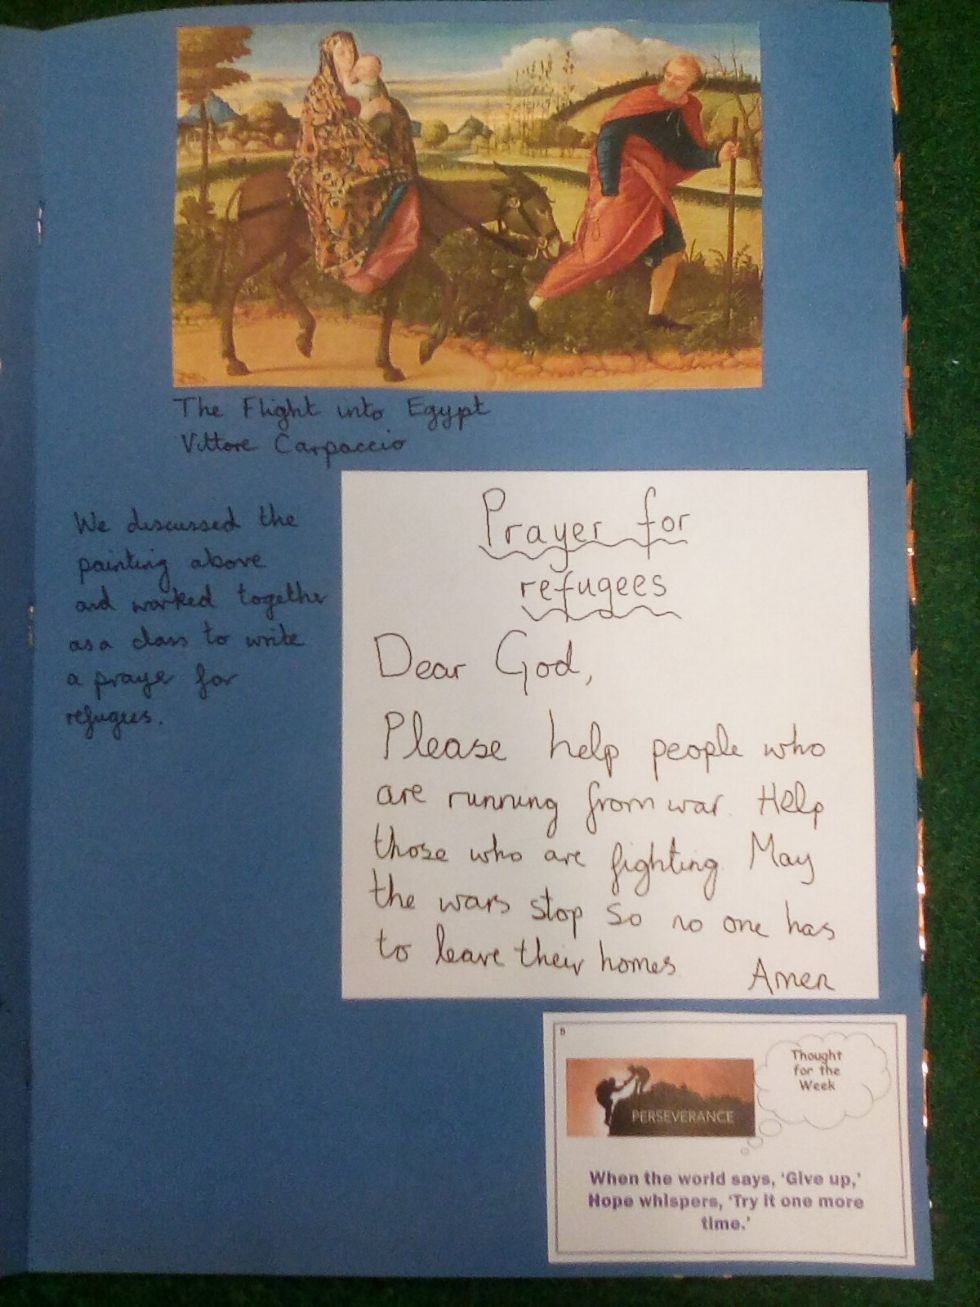 The Flight into Egypt
Vittore Carpaccio
We discussed the
painting above
and worked together
as a class to write
a prayer for
refugees.
Prayer for
refugees
Dear God,
Please help people who
are running from war. Help
those who are fighting. May
the wars stop so no one has
to leave their homes
Amen
Thought
for the
Week
PERSEVERANCE
When the world says, 'Give up,'
Hope whispers, 'Try it one more
time.'